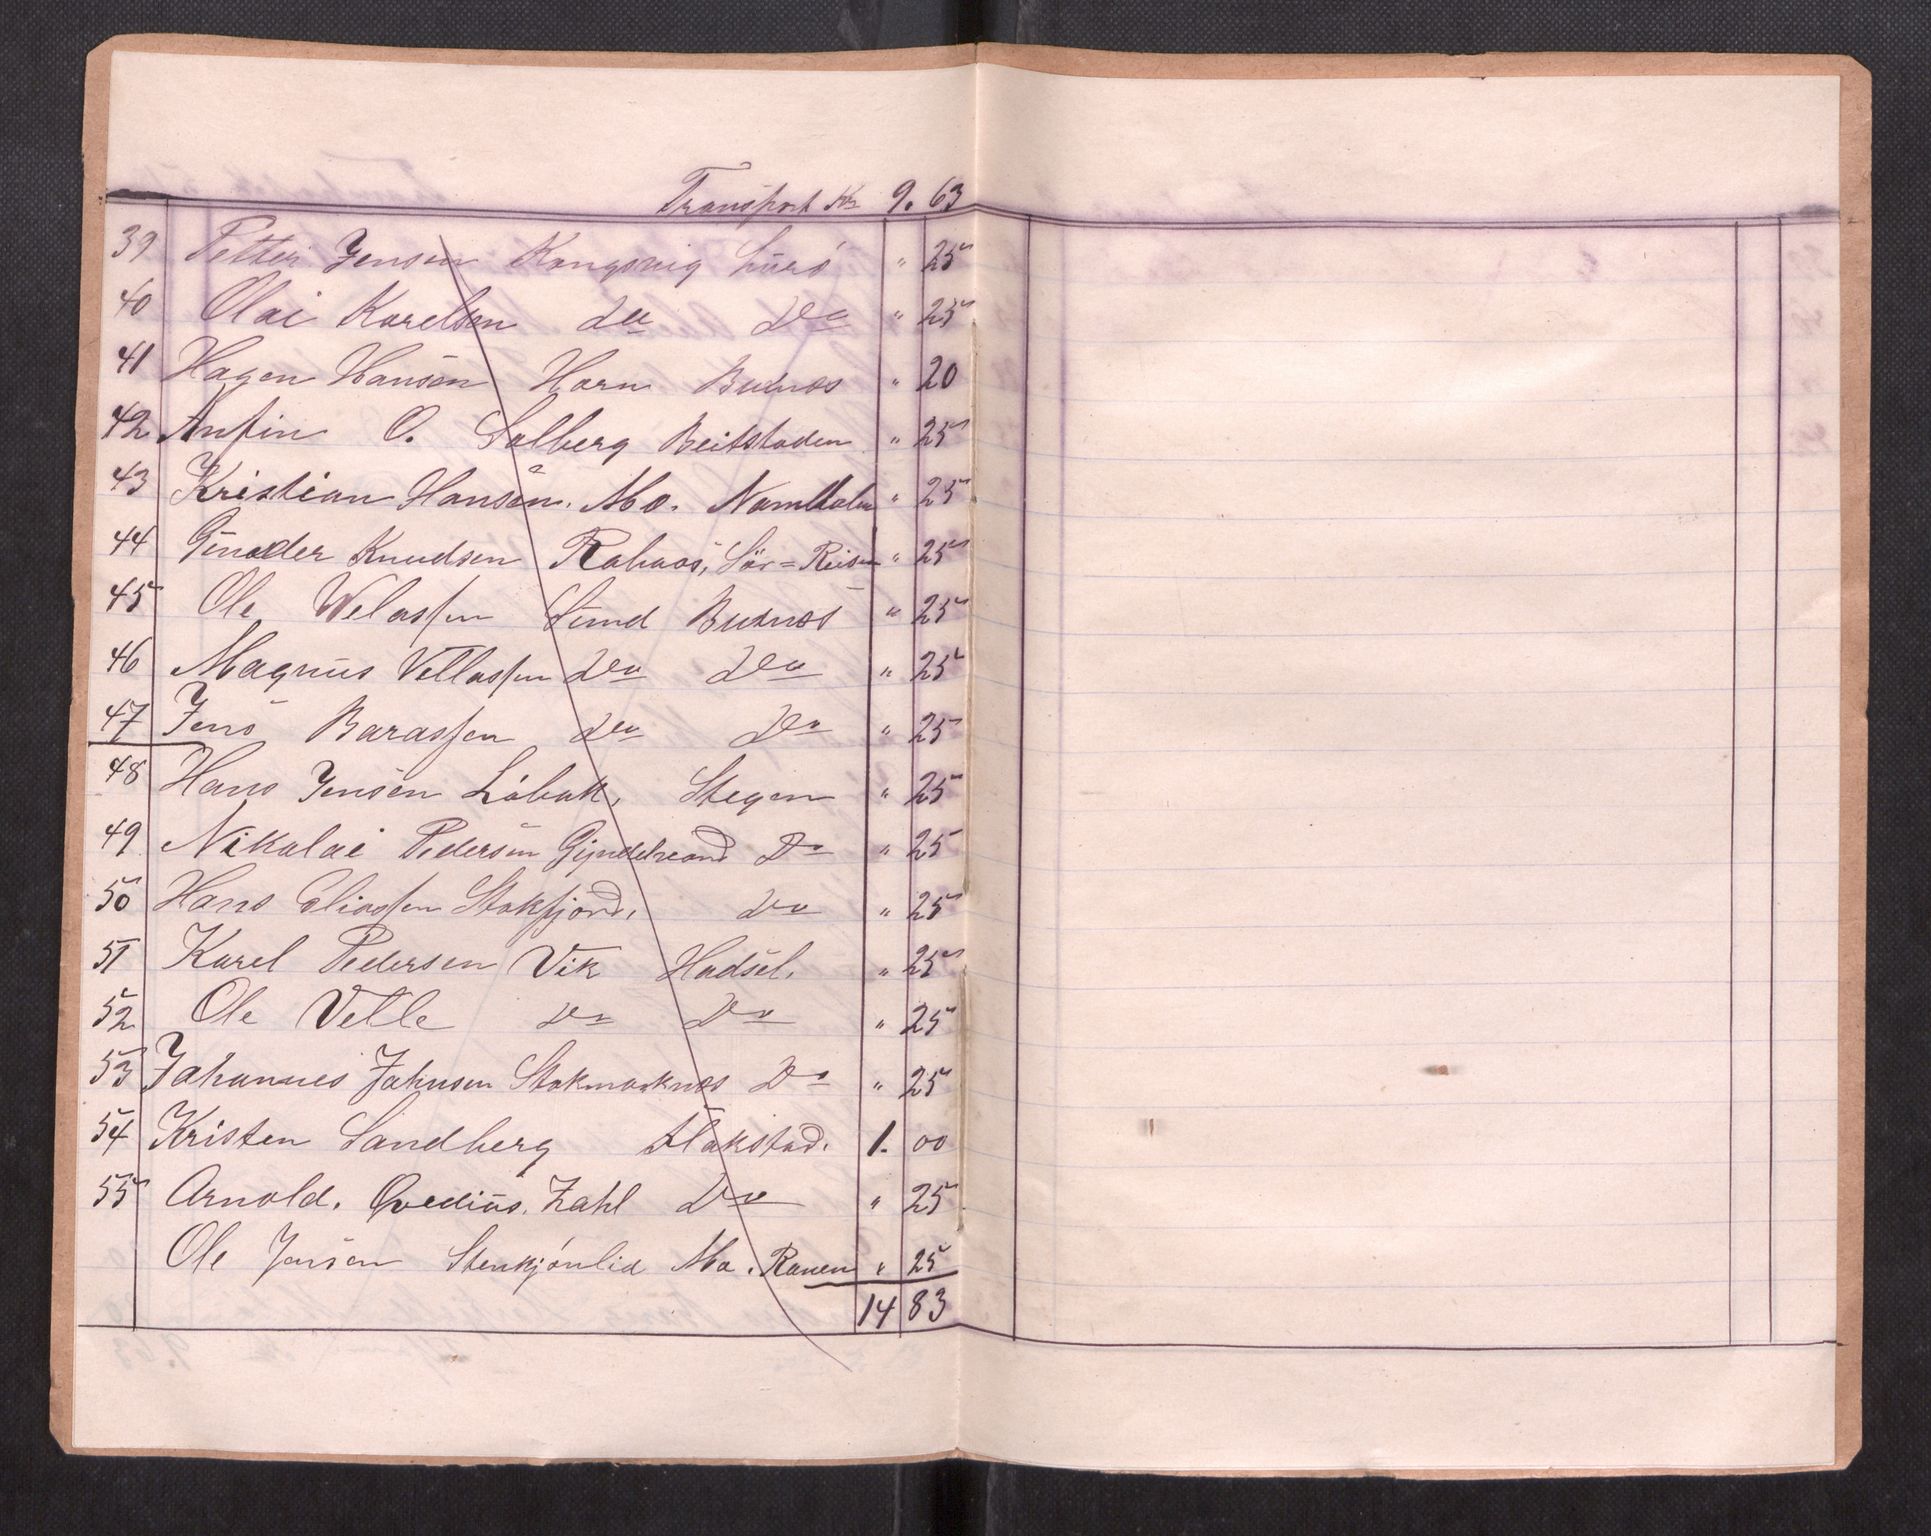 Transport Kr 9. 63
39 Petter Jensen Kongsvig Lurö " 25
40 Olai Karelsen Do Do " 25
41 Hagen Hansen Horn Buxnæs " 20
42 Anfin O. Solberg Beitstaden " 25
43 Kristian Hansen. Mo. Namdalen " 25
44 Knudsen Sör=Reisen " 25
45 Ole Welassen Sund Buxnæs " 25
46 Magnus Vellassen Do Do " 25
47 Jens Barassen Do Do " 25
48 Hans Jensen Löbak, Stegen " 25
49 Nikolai Pedersen Do " 25
50 Hans Eliassen Stokfjord, Do " 25
51 Karel Pedersen Vik Hadsel. " 25
52 Ole Vetle Do Do " 25
53 Johannes Johnsen Stokmarknæs Do " 25
54 Kristen Sandberg Flakstad. 1. 00
55 Arnold. Qvedius. Zahl Do " 25
Ole Jensen Stenkjönlid Mo. Ranen " 25
14 83